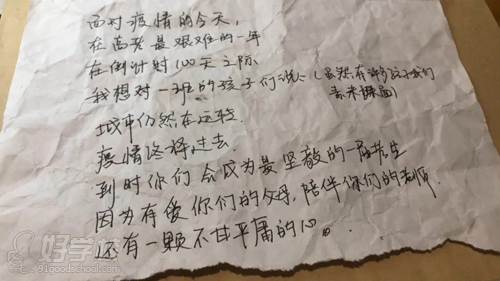 面对疫情的今天,
在高考最艰难的一年
在倒计时100天之际
我想对一班的孩子们说:(虽然有许多孩子我们
素未谋面)
城市仍然在运转.
疫情终将过去.
到时你们会成为最坚毅的一届考生
因为有爱你们的父母,陪伴你们的老师.
还有一颗不甘平庸的心。
91goodschool.com